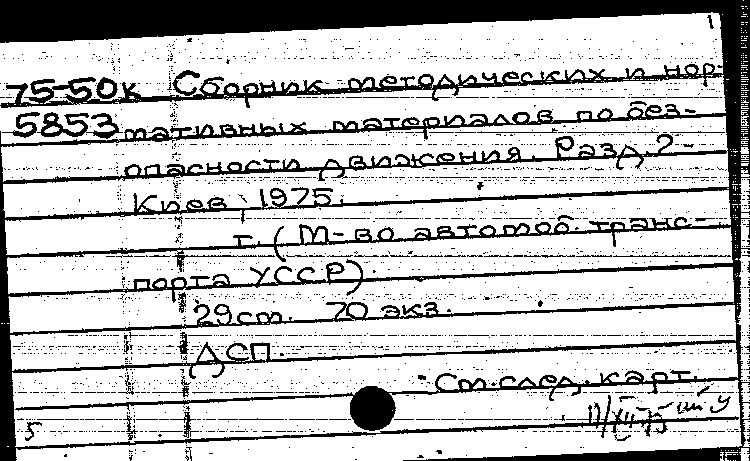 1
75-50к Сборник методических и нор-
5853 мативных материалов по без-
опасности движения. Разд. 2-
Киев, 1975.
т. (М-во автомоб. транс-
порта УССР).
29 см. 70 экз.
ДСП.
См. след. карт.
5 11/XII-75